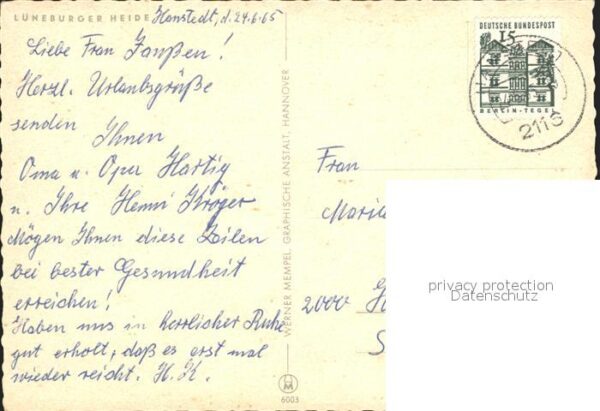 LÜNEBURGER HEIDE
Hanstedt, d. 24.6.65
Liebe Frau Janßen!
Herzl. Urlaubsgrüße
senden
Ihnen
Oma u. Opa Hartig
u. Ihre Henni Kröger
Mögen Ihnen diese Zeilen
bei bester Gesundheit
erreichen!
Haben uns in herrlicher Ruhe
gut erholt, daß es erst mal
wieder reicht. H. K.
WERNER MEMPEL, GRAPHISCHE ANSTALT, HANNOVER
6003
DEUTSCHE BUNDESPOST
15
BERLIN-TEGEL
2115
Frau
2000
privacy protection
Datenschutz